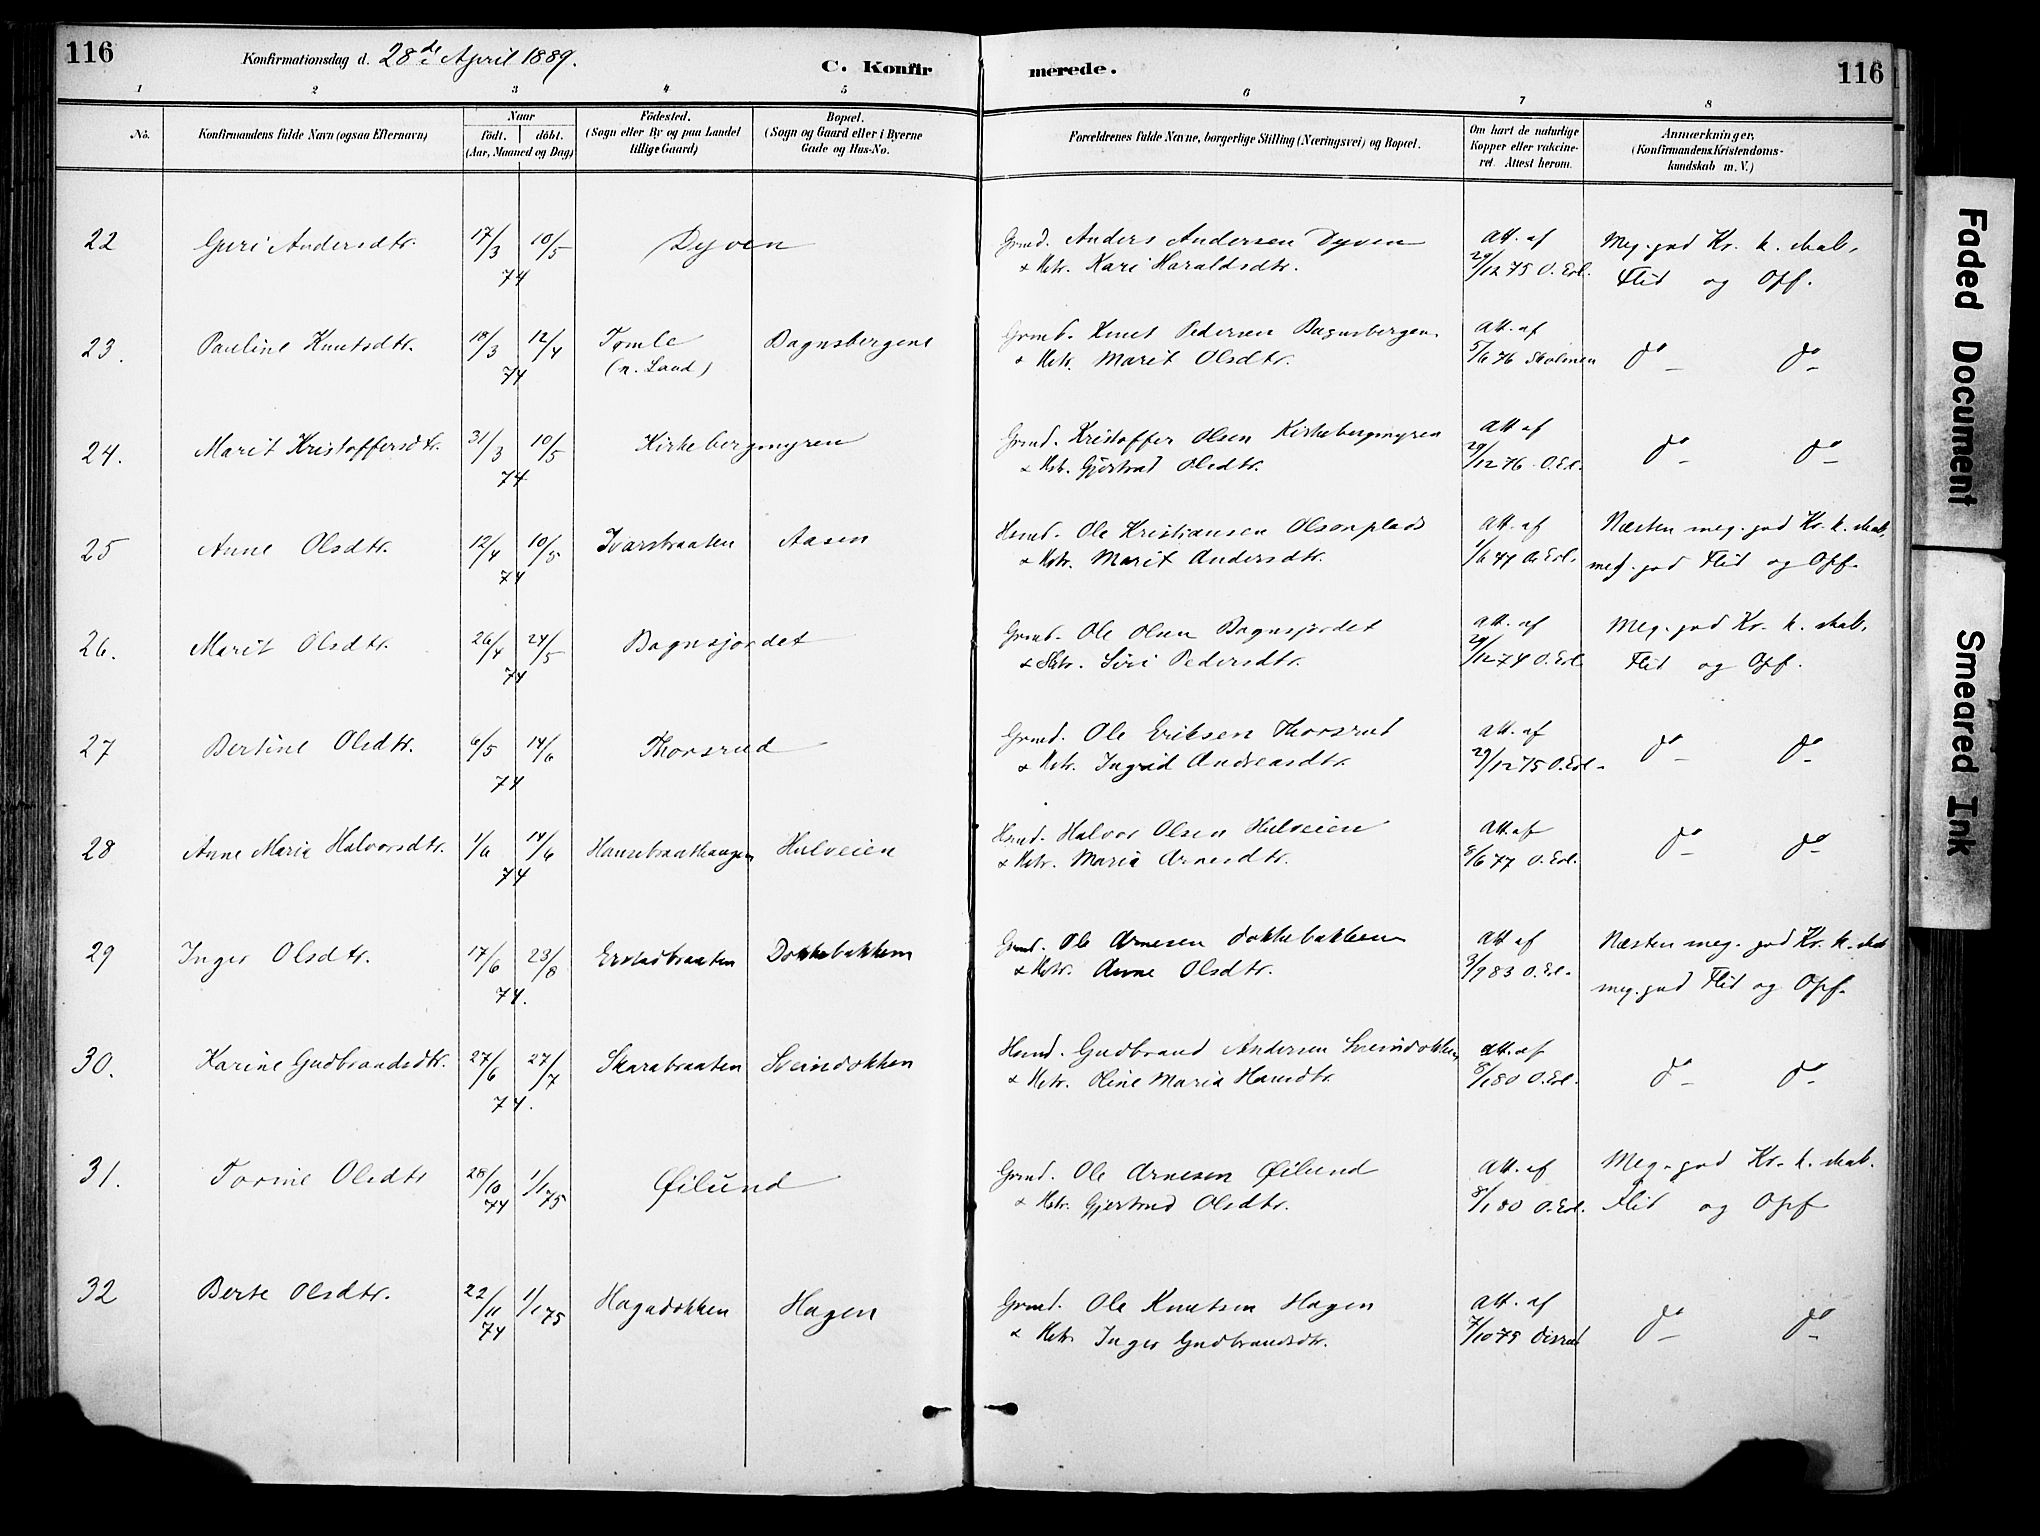 116
Konfirmationsdag d. 28de April 1889.
C. Konfir
merede.
116
1 2 3 4 5 6 7 8
No.
Konfirmandens fulde Navn (ogsaa Efternavn)
Naar
födt. döbt.
(Aar, Maaned og Dag)
Födested.
(Sogn eller By og paa Landet
tillige Gaard)
Bopæl.
(Sogn og Gaard eller i Byerne
Gade og Hus-No.
Forældrenes fulde Navne, borgerlige Stilling (Næringsvei) og Bopæl.
Om havt de naturlige
Kopper eller vakcine-
ret. Attest herom.
Anmærkninger,
(Konfirmandens Kristendoms-
kundskab m. V.)
22 Guri Andersdtr. 17/3 10/5 Dyven Grmd. Anders Andersen Dyven Att. af Meg. god Kr. k. skab,
74 & Hstr. Kari Haraldsdtr. 29/12 75 O. Erl. Flid og Opf.
23. Pauline Knutsdtr. 18/3 12/4 Tomle Bagnsbergene Grmd. Knut Pedersen Bagnsbergen. Att. af
74 (n. Land) & Hstr. Marit Olsdtr. 5/6 76 Skolmen do - do -
24. Marit Kristoffersdtr. 31/3 10/5 Kirkebergmyren Grmd. Kristoffer Olsen Kirkebergmyren Att af
74 & Hstr. Gjertrud Olsdtr. 29/12 76 O. Erl. do - do -
25 Anne Olsdtr. 12/4 10/5 Ivarsbraaten Aasen Hsmd. Ole Kristiansen Olsonplads Att. af Næsten meg. god Kr. k. skab,
74 & Hstr. Marit Andersdtr. 1/6 77 O. Erl. meg. god Flid og Opf.
26. Marit Olsdtr. 26/4 24/5 Bagnsjordet Grmd. Ole Olsen Bagnsjordet Att. af Meg. god Kr. k. skab,
74 & Hstr. Siri Pedersdtr. 29/12 74 O. Erl. Flid og Opf.
27 Bertine Olsdtr. 6/5 14/6 Thorsrud Grmd. Ole Eriksen Thorsrud Att. af
74 & Hstr. Ingrid Andreasdtr. 29/12 75 O. Erl. do - do -
28 Anne Maria Halvorsdtr. 1/6 14/6 Hansebraathaugen Hulveien Hsmd. Halvor Olsen Hulveien Att af
74 & Hstr. Maria Arnesdtr. 8/6 77 O. Erl. do - do -
29 Inger Olsdtr. 17/6 23/8 Erstadbraaten Dokkebakken Grmd. Ole Arnesen Dokkebakken Att af Næsten meg. god Kr. k. skab
74. & Hstr. Anne Olsdtr. 3/9 83 O. Erl. meg. god Flid og Opf.
30. Karine Gudbrandsdtr. 27/6 27/7 Skarabraaten Sveindokken Hsmd. Gudbrand Andersen Sveindokken Att. af
74. & Hstr. Oline Maria Hansdtr. 8/1 80 O. Erl. do - do -
31. Torine Olsdtr 28/10 1/1 75 Øilund Grmd. Ole Arnesen Øilund Att. af Meg. god Kr. k. skab.
74 & Hstr. Gjertrud Olsdtr. 8/1 80 O. Erl. Flid og Opf
32 Berte Olsdtr. 22/11 1/1 75 Hagadokken Hagen Grmd. Ole Knutsen Hagen Att. af
74 & Hstr. Inger Gudbrandsdtr. 7/10 79 Disrud do - do -
Faded Document
Smeared Ink